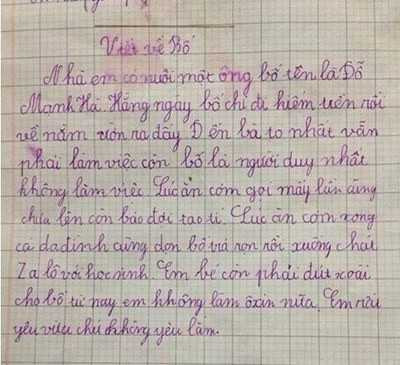 Viết về Bố
Nhà em có nuôi một ông bố tên là Đỗ
Mạnh Hà. Hằng ngày bố chỉ đi kiếm uốn rồi
về nằm ườn ra đấy D ến bà to nhất vẫn
phải làm việc còn bố là người duy nhất
không làm việc. Lúc ăn cơm gọi mấy lần cũng
chưa lên còn bảo đợi tao tí. Lúc ăn cơm xong
cả da dình cùng dọn bố vả rọn rồi xuống chát
Za lô với học sinh. Em bé còn phải đút xoài
cho bố từ nay em không làm ôxin nữa. Em rửi
yêu vừa chứ không yêu lắm.